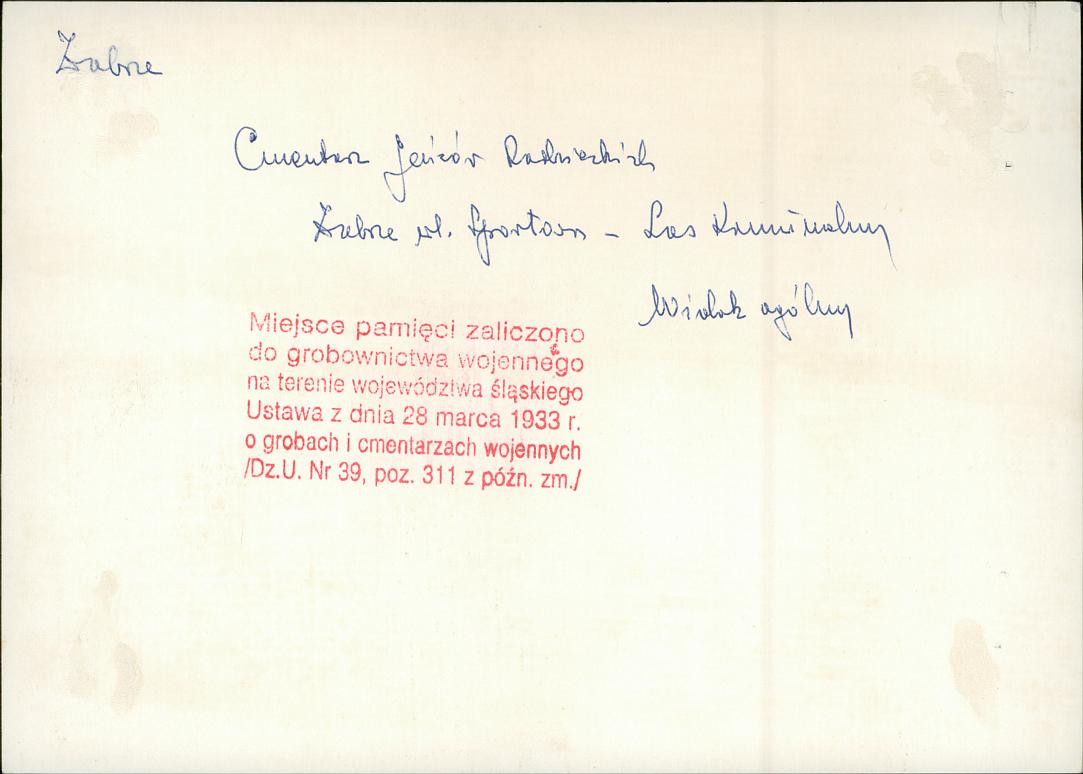 Zabrze
Cmentarz Jeńców Radzieckich
Zabrze ul. - Las Komunalny
Widok ogólny
Miejsce pamięci zaliczono
do grobownictwa wojennego
na terenie województwa śląskiego
Ustawa z dnia 28 marca 1933 r.
o grobach i cmentarzach wojennych
/Dz.U. Nr 39, poz. 311 z późn. zm./